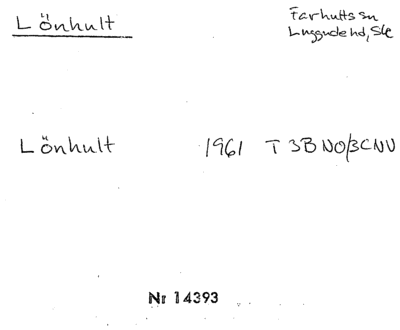 Lönhult
Farhults sn
Luggude hd, Ske
Lönhult 1961 T 3B NO/3C NV
Nr 14393